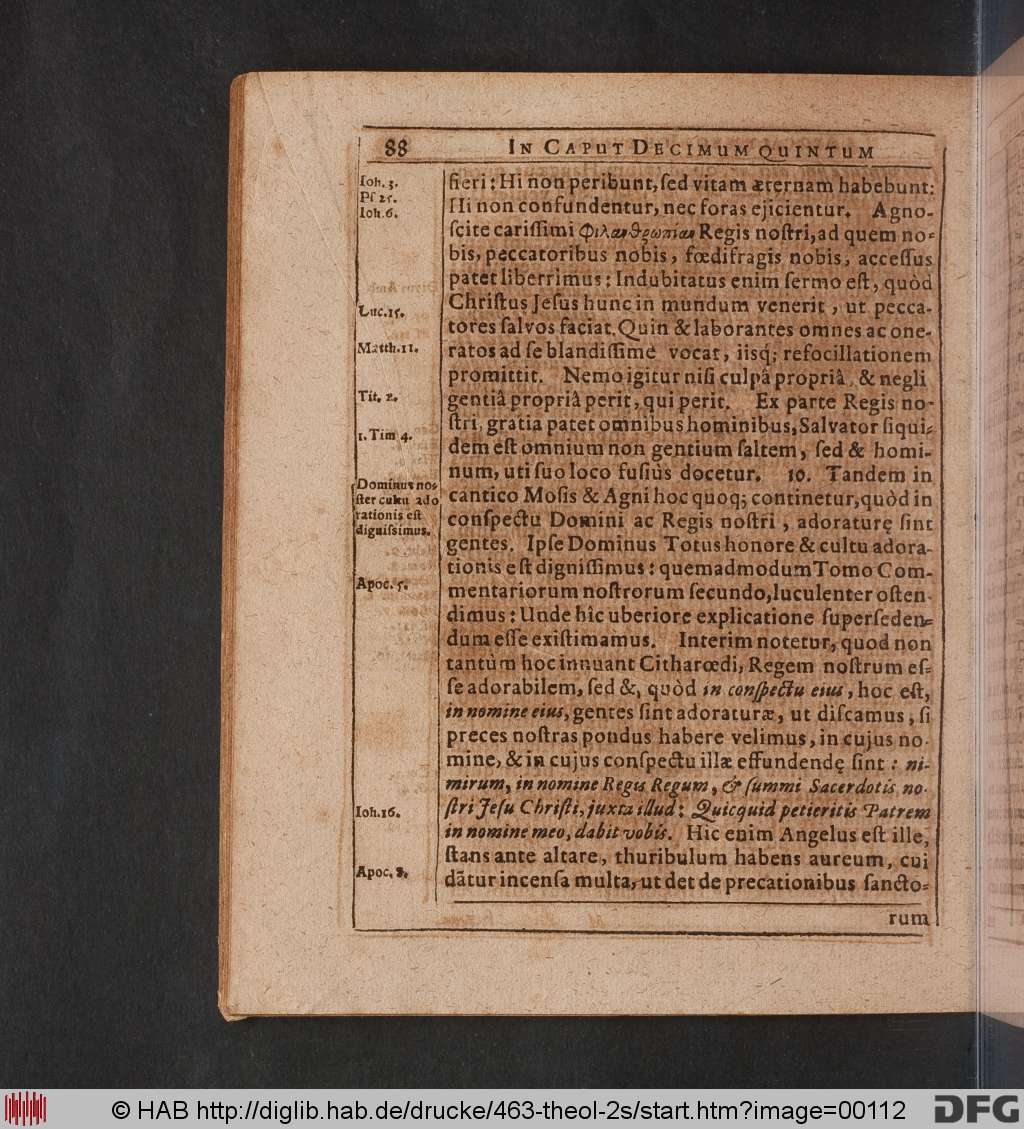 88 IN CAPUT DECIMUM QUINTUM
Ioh. 3.
Ps 25.
Ioh. 6.
Luc. 15.
Matth. 11.
Tit. 2.
1. Tim 4.
Dominus no-
ster cultu ado
rationis est
dignissimus.
Apoc. 5.
Ioh. 16.
Apoc. 8.
fieri: Hi non peribunt, sed vitam æternam habebunt:
Hi non confundentur, nec foras ejicientur. Agno-
scite carissimi φιλανθρωπίαν Regis nostri, ad quem no-
bis, peccatoribus nobis, fœdifragis nobis, accessus
patet liberrimus: Indubitatus enim sermo est, quòd
Christus Jesus hunc in mundum venerit, ut pecca-
tores salvos faciat. Quin & laborantes omnes ac one-
ratos ad se blandissimè vocat, iisq; refocillationem
promittit. Nemo igitur nisi culpâ propriâ, & negli
gentiâ propriâ perit, qui perit. Ex parte Regis no-
stri, gratia patet omnibus hominibus, Salvator siqui-
dem est omnium non gentium saltem, sed & homi-
num, uti suo loco fusiùs docetur. 10. Tandem in
cantico Mosis & Agni hoc quoq; continetur, quòd in
conspectu Domini ac Regis nostri, adoraturę sint
gentes. Ipse Dominus Totus honore & cultu adora-
tionis est dignissimus: quemadmodum Tomo Com-
mentariorum nostrorum secundo, luculenter osten-
dimus: Unde hic uberiore explicatione superseden-
dum esse existimamus. Interim notetur, quod non
tantùm hoc innuant Citharœdi, Regem nostrum es-
se adorabilem, sed &, quòd in conspectu eius, hoc est,
in nomine eius, gentes sint adoraturæ, ut discamus, si
preces nostras pondus habere velimus, in cujus no-
mine, & in cujus conspectu illæ effundendę sint: ni-
mirum, in nomine Regis Regum, & summi Sacerdotis no-
stri Jesu Christi, juxta illud: Quicquid petieritis Patrem
in nomine meo, dabit vobis. Hic enim Angelus est ille,
stans ante altare, thuribulum habens aureum, cui
dãtur incensa multa, ut det de precationibus sancto-
rum
© HAB http://diglib.hab.de/drucke/463-theol-2s/start.htm?image=00112
DFG